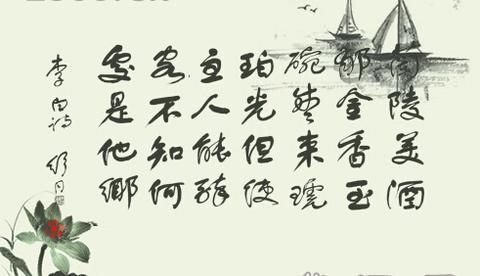 蘭陵美酒
鬱金香玉
碗盛来琥
珀光但使
主人能醉
客不知何
處是他鄉
李白诗 舒同